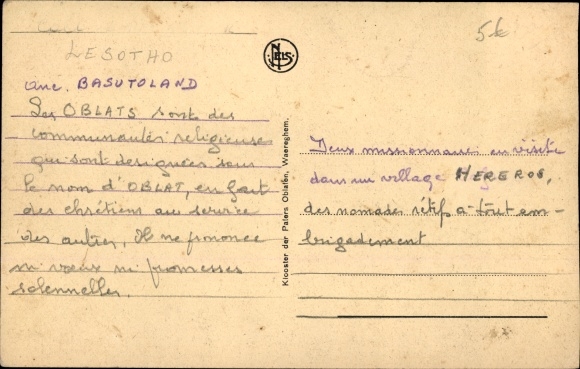 5k
LESOTHO
NELS
anc. BASUTOLAND
Les OBLATS sont des
communautés religieuses
qui sont designées sous
le nom d'OBLAT, en fait
des chrétiens au service
des autres, Il ne prononce
ni voeux ni promesses
solennelles.
Klooster der Paters Oblaten, Waereghem.
Deux missionnaires en visite
dans un village HEREROS,
des nomades rétifs à tout em-
brigadement